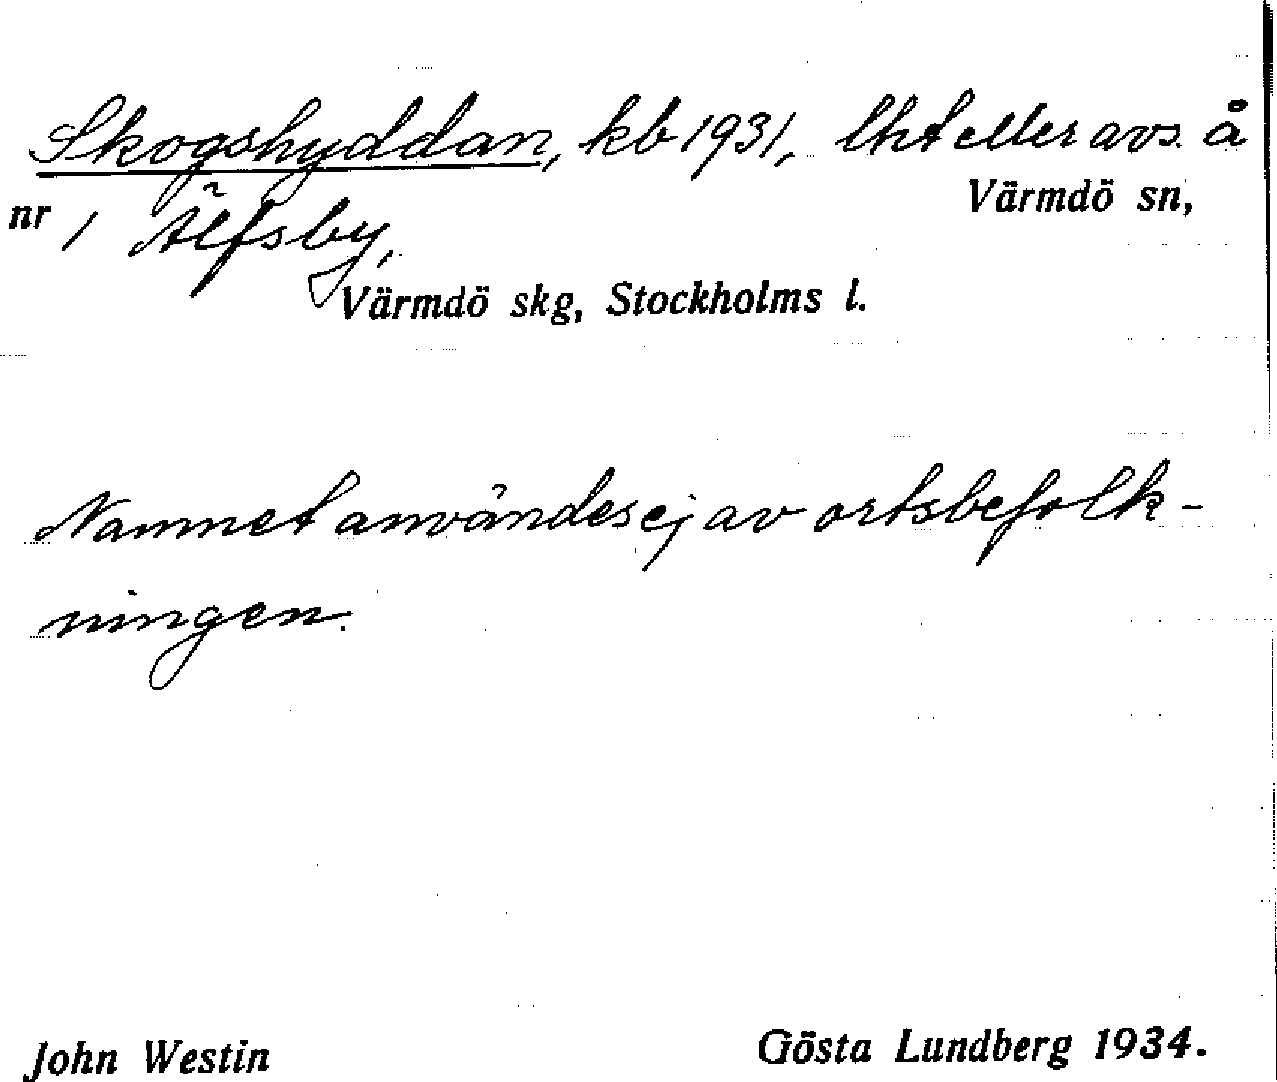 Skogshyddan, kb 1931, lht eller avs. å
Värmdö sn,
nr 1 Älfsby,
Värmdö skg, Stockholms l.
Namnet användes ej av ortsbefolk-
ningen.
John Westin
Gösta Lundberg 1934.